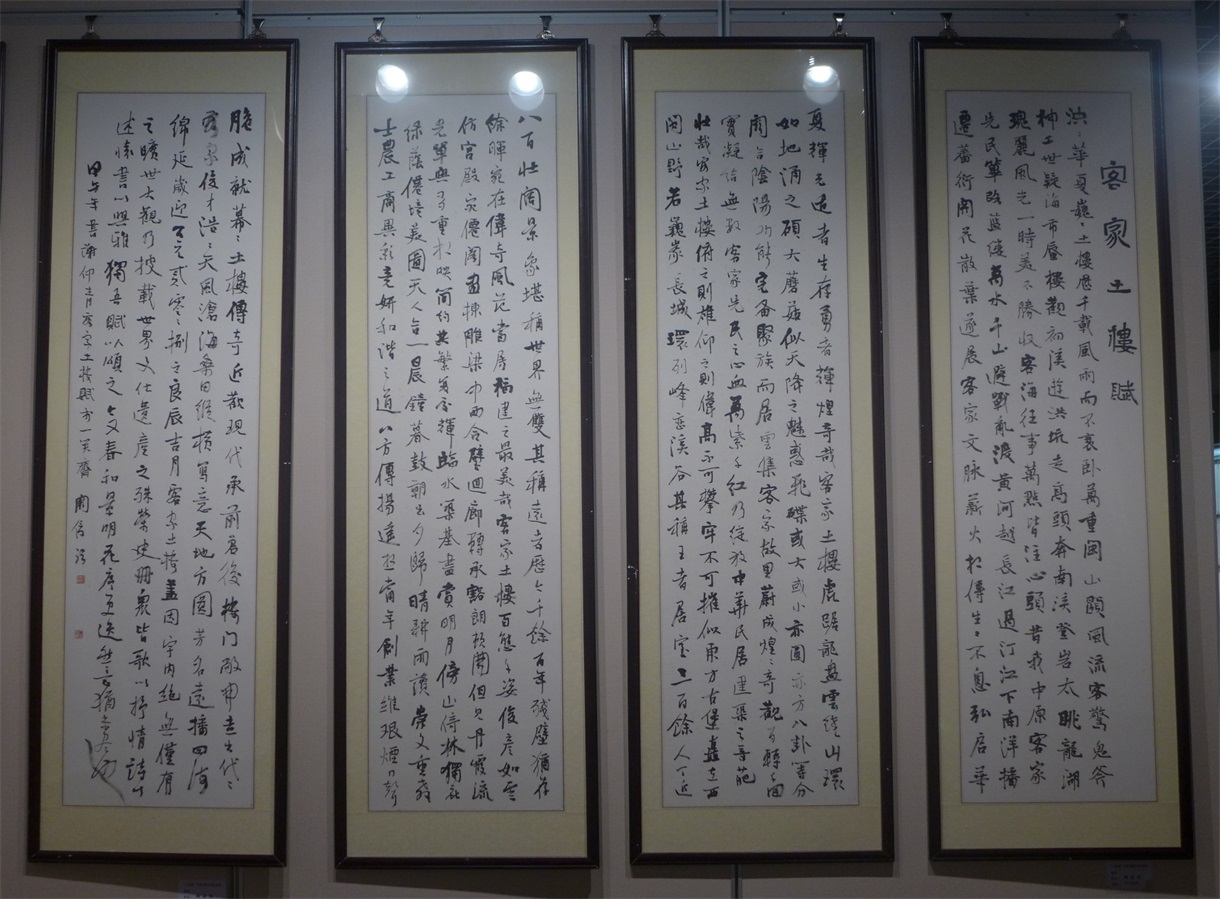 客家土樓賦
洪洪華夏巍巍土樓歷千載風雨而不衰臥萬重閩山顯風流客驚鬼斧
神工世疑海市蜃樓觀初溪遊洪坑走高頭奔南溪登岩太眺龍湖
瑰麗風光一時美不勝收客海往事萬點皆注心頭昔我中原客家
先民篳路藍縷萬水千山避戰亂渡黃河越長江過汀江下南洋播
遷蕃衍開花散葉遂展客家文脉薪火相傳生生不息弘居華
夏輝元造者生存勇者輝煌奇哉客家土樓虎踞龍盤雲繞山環
如地湧之碩大蘑菇似天降之魅惑飛碟或大或小亦圓亦方八卦
閣合陰陽功能完备聚族而居雲集客家故里蔚成煌煌奇觀
寶凝詰無數客家先民之心血萬紫千紅乃綻放中華民居建築之奇葩
壯哉客家土樓俯之則雄仰之則偉高不可攀牢不可摧似東方古堡矗立西
閩山野若巍峩長城環列峰巒溪谷其稱王者居室三百餘人
八百壯闊景象堪稱世界無雙其稱遠古歷七千餘百年殘壁猶存
餘暉宛在偉奇風范當居福建之最美哉客家土樓百態千姿俊彥如雲
仿宮殿宛僊閣畫棟雕梁中西合璧迴廊轉承豁朗軒開但見丹霞流
光翠與子重相映簡約其繁育交輝臨水築基畫賞明月傍山倚林獨
綠蔭僊境美圖天人合一晨鐘暮鼓朝出夕歸晴耕雨讀崇文重教
士農工商異彩竞妍和諧之道八方傳揚遙丕當年創業維艱
胞成就幕幕土樓傳奇近觀現代承前啓後接門敞開走出代代
客家俊才浩浩天風滄海桑田縱橫寫意天地方圓芳名遠播四海
綿延歲迎公元貳零零捌之良辰吉月客家土樓蓋因宇內絕無僅有
之曠世大觀乃披載世界文化遺產之殊榮史冊眾皆歌以抒情詩以
述懷書以興雅獨吾賦以頌之
甲午年書謝仲青客家土樓賦於一笑齋